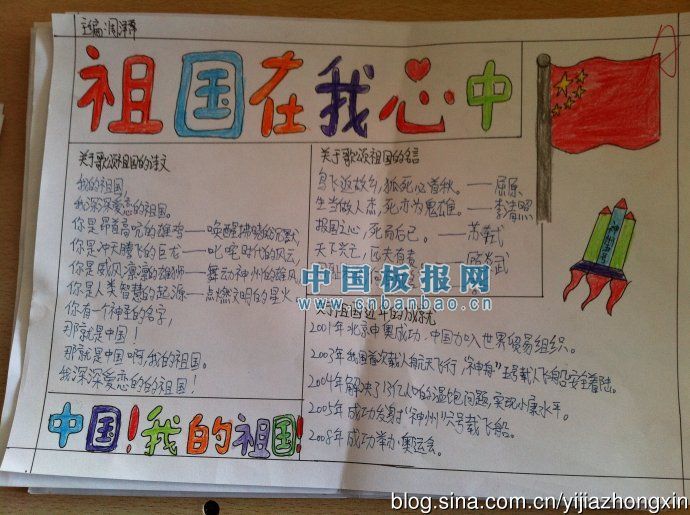 主编:周泽霖
祖国在我心中
关于歌颂祖国的诗文
我的祖国,
我深深爱恋的祖国。
你是昂首高吭的雄鸡——唤醒拂晓的沉默
你是冲天腾飞的巨龙——叱咤时代的风云
你是威风凛凛的雄狮——舞动神州的雄风
你是人类智慧的起源——点燃文明的星火
你有一个神圣的名字,
那就是中国!
那就是中国啊,我的祖国。
我深深爱恋的的祖国!
中国!我的祖国!
关于歌颂祖国的名言
鸟飞返故乡,狐死必首秋。——屈原
生当做人杰,死亦为鬼雄。——李清照
报国之心,死而后已。——苏轼
天下兴亡,匹夫有责
关于祖国近年的成就
2001年北京申奥成功,中国加入世界贸易组织。
2003年我国首次载人航天飞行,"神舟"五号载人飞船安全着陆。
2004年解决了13亿人口的温饱问题,实现小康水平。
2005年成功发射"神州"六号载飞船。
2008年成功举办奥运会。
中国板报网
www.cnbanbao.cn
blog.sina.com.cn/yijiazhongxin